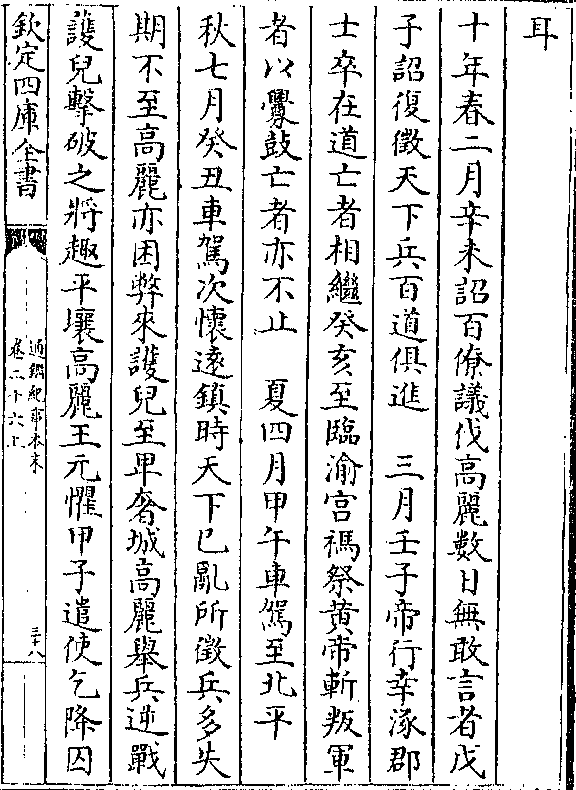 耳
十年春二月辛未詔百僚議伐高麗數日無敢言者戊
子詔復徵天下兵百道俱進　三月壬子帝行幸涿郡
士卒在道亡者相繼癸亥至臨渝宫禡祭黄帝斬叛軍
者以釁鼓亡者亦不止　夏四月甲午車駕至北平
秋七月癸丑車駕次懷遠鎮時天下已亂所徵兵多失
期不至高麗亦困弊來護兒至卑奢城高麗舉兵逆戰
護兒擊破之將趣平壤高麗王元懼甲子遣使乞降囚
欽定四庫全書
通鑑紀事本末
卷二十六上
三十八